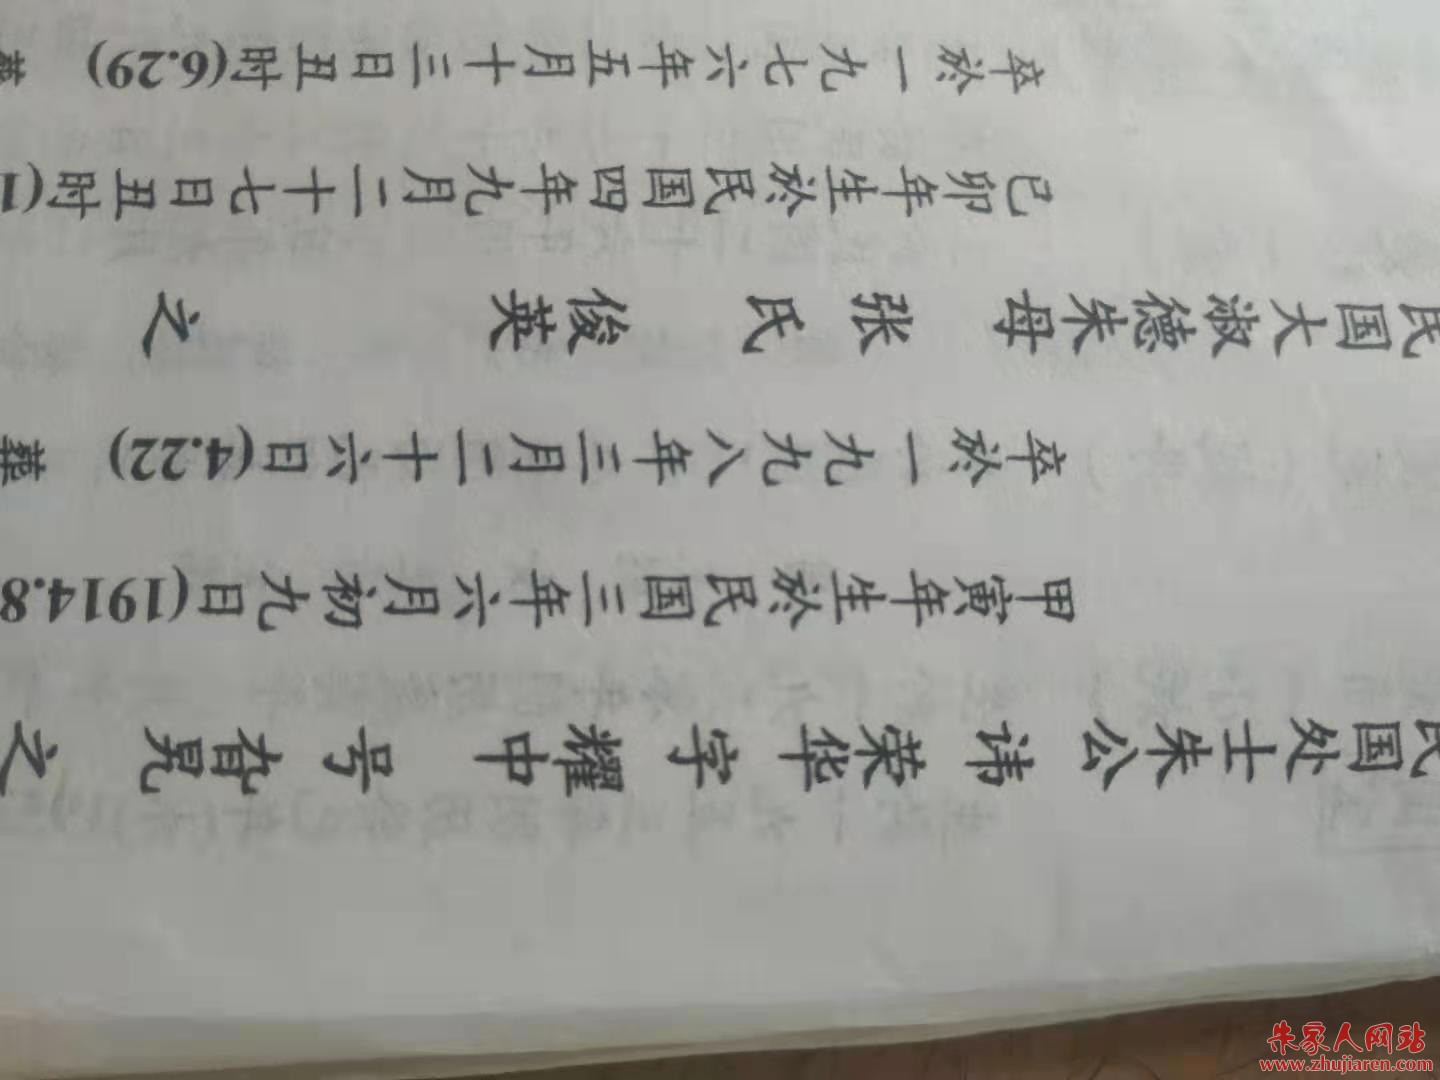 民国处士朱公 讳 荣华 字 耀中 号 之
甲寅年生於民国三年六月初九日(1914.8
卒於一九九八年三月二十六日(4.22) 葬
民国大淑德朱母 张 氏 俊英 之
己卯年生於民国四年九月二十七日丑时(1
卒於一九七六年五月十三日丑时(6.29) 葬
朱家人网站
www.zhujiaren.com